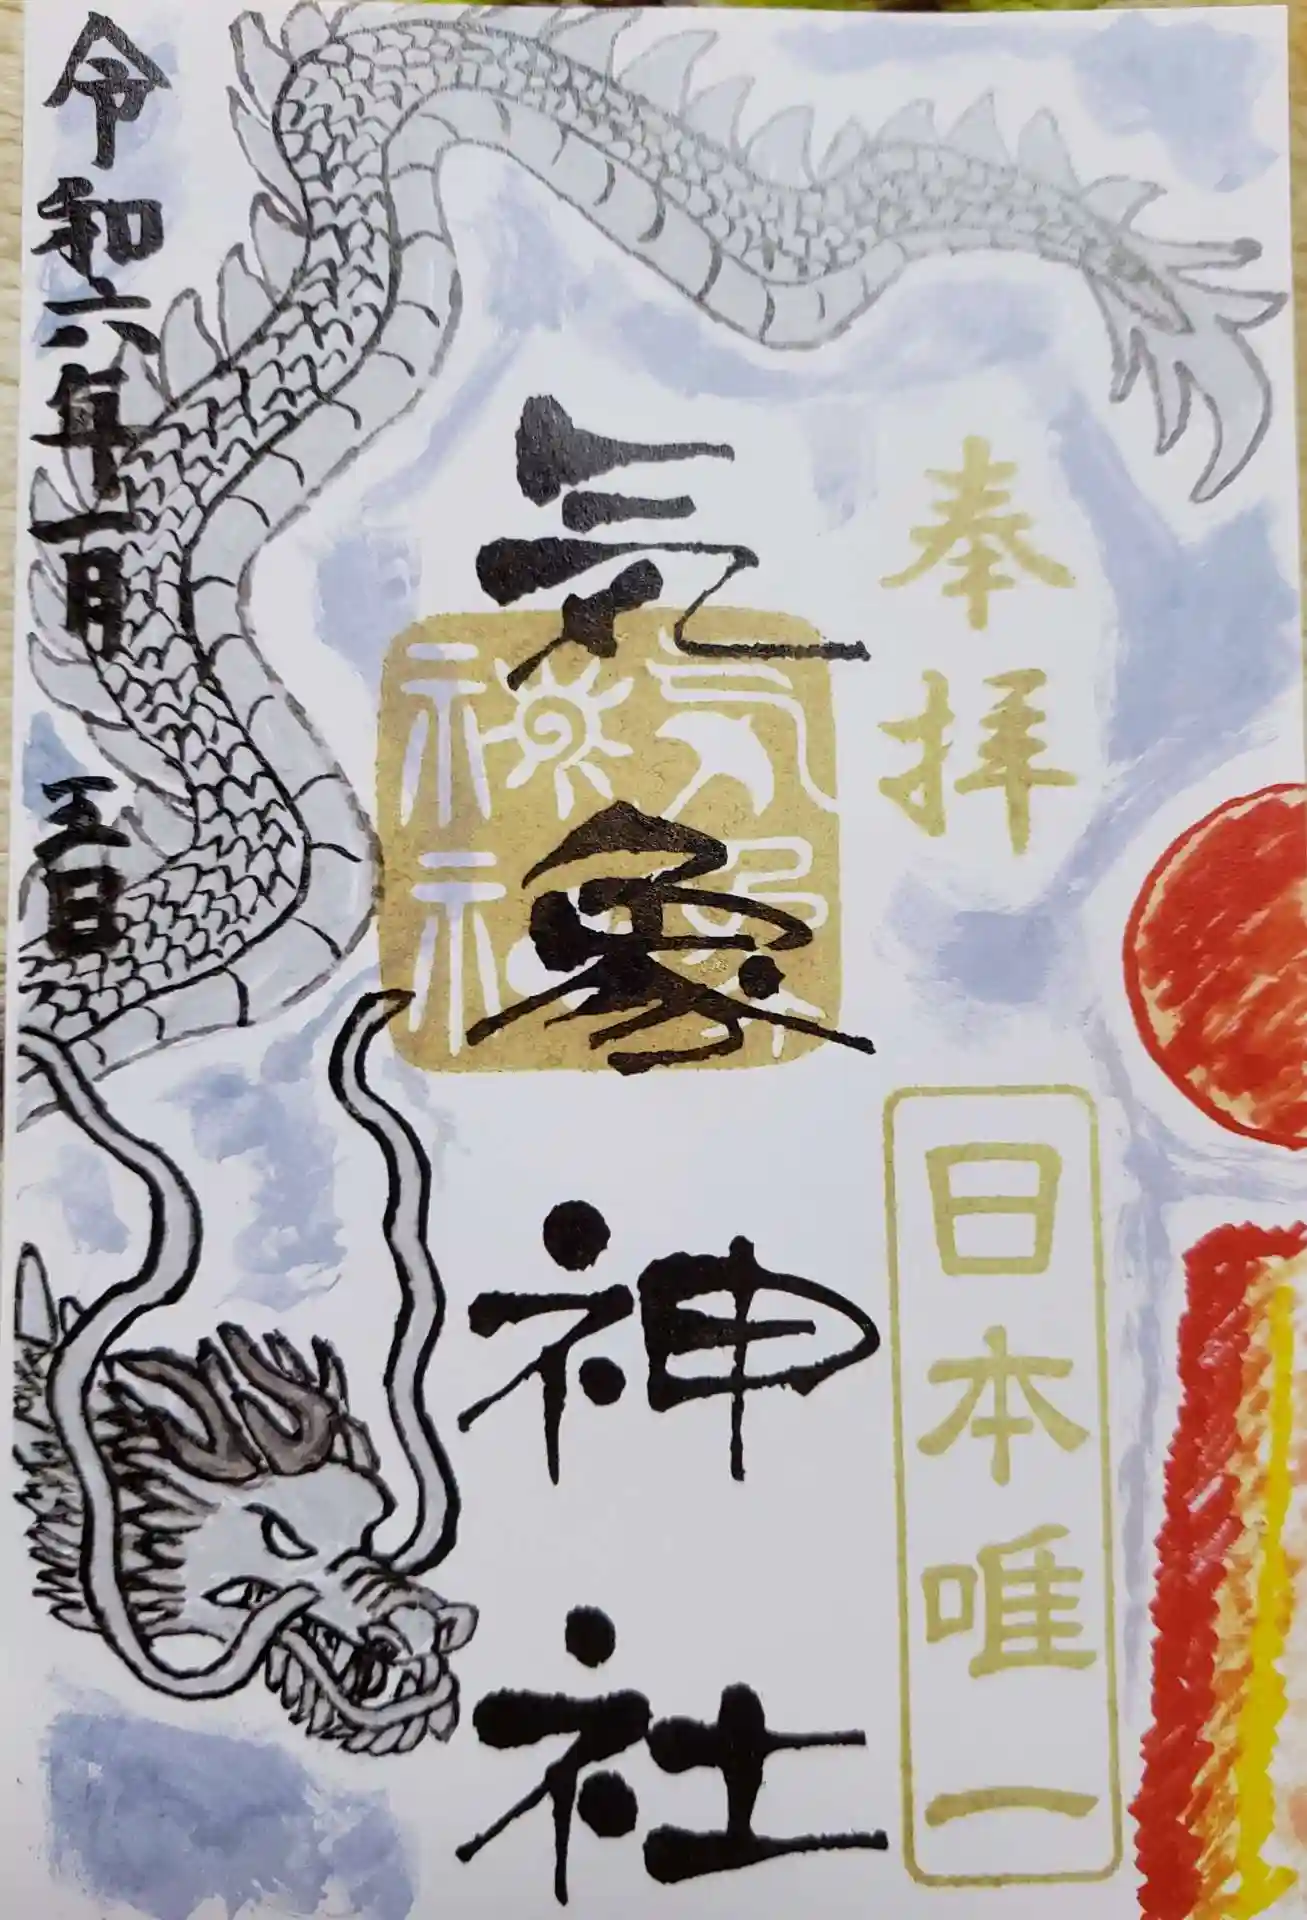 奉拝
日本唯一
気象神社
気象神社
令和六年一月五日